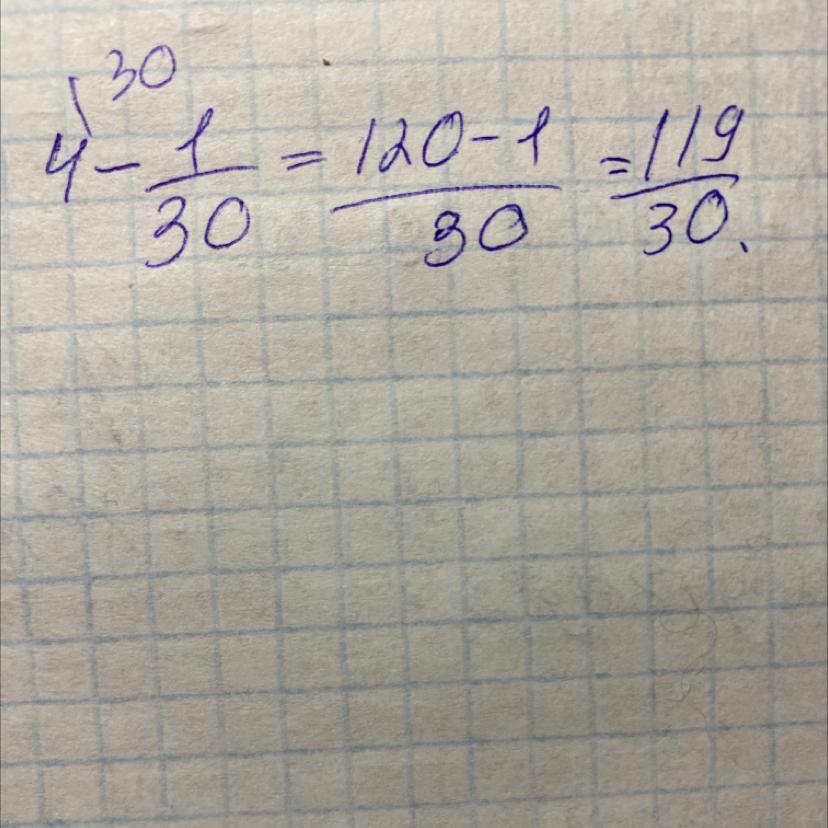 \30
4 - 1/30 = (120 - 1)/30 = 119/30.